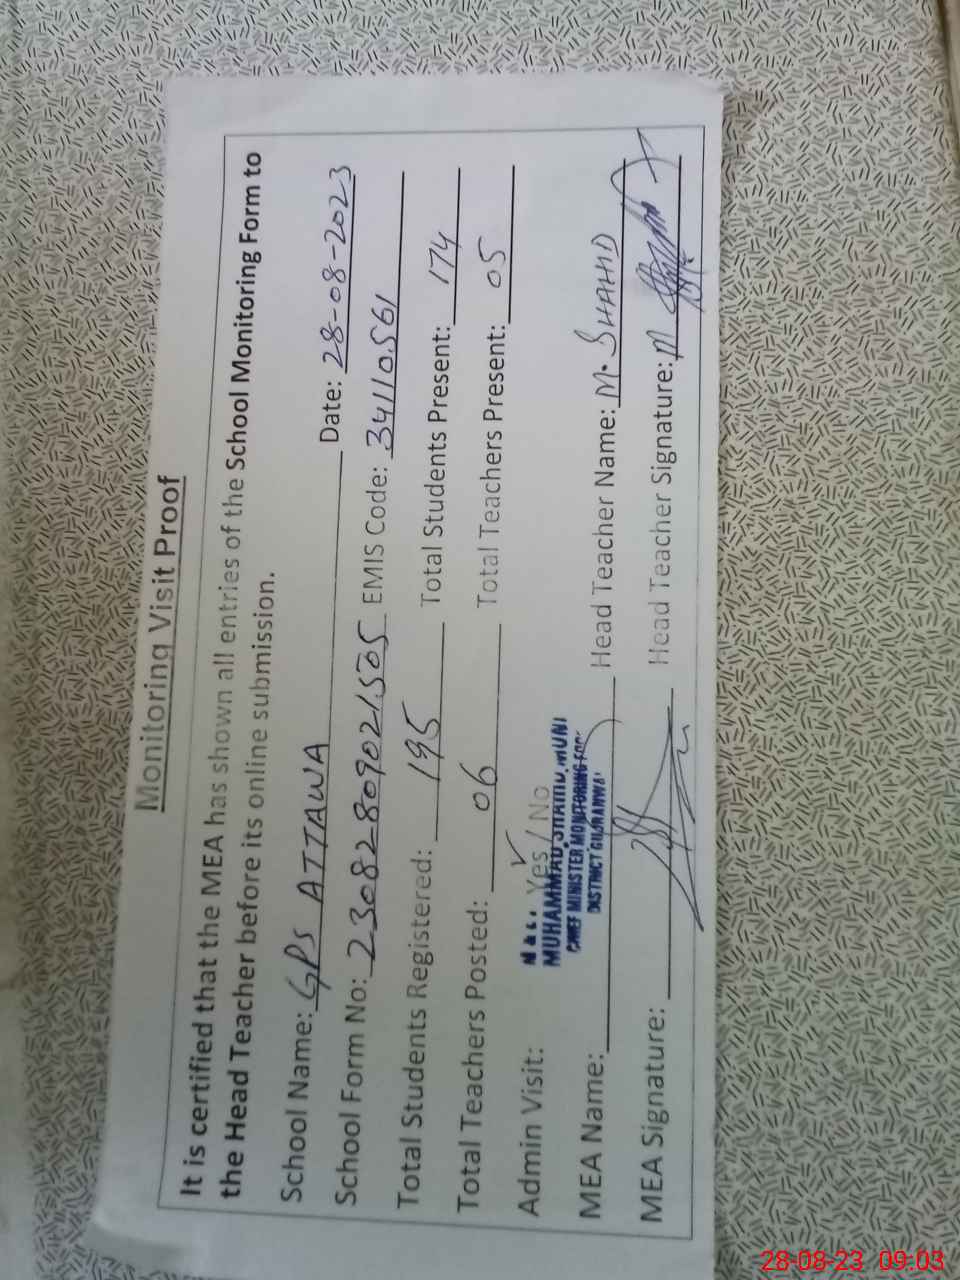 Monitoring Visit Proof
It is certified that the MEA has shown all entries of the School Monitoring Form to
the Head Teacher before its online submission.
School Name: GPS ATTAWA Date: 28-08-2023
School Form No: 23082809021505 EMIS Code: 34110561
Total Students Registered: 195 Total Students Present: 174
Total Teachers Posted: 06 Total Teachers Present: 05
Admin Visit: Yes / No
MUHAMMAD
CHIEF MINISTER MONITORING
DISTRICT GUJRANWA
MEA Name: Head Teacher Name: M. SHAHID
MEA Signature: Head Teacher Signature: M
28-08-23 09:03